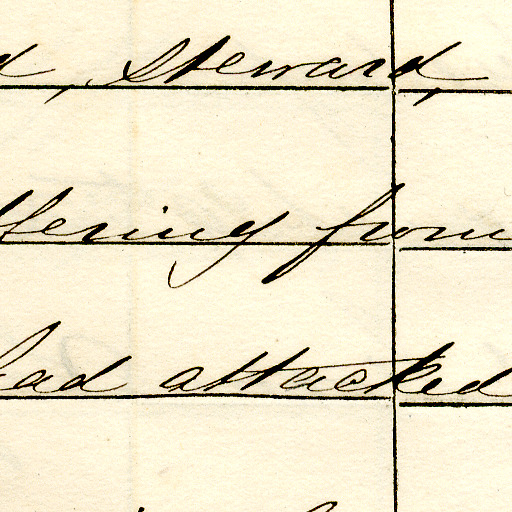 d, Steward,
ffering from
had attacked